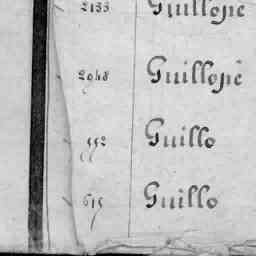 2133 Guillopé
2948 Guillopé
552 Guillo
615 Guillo